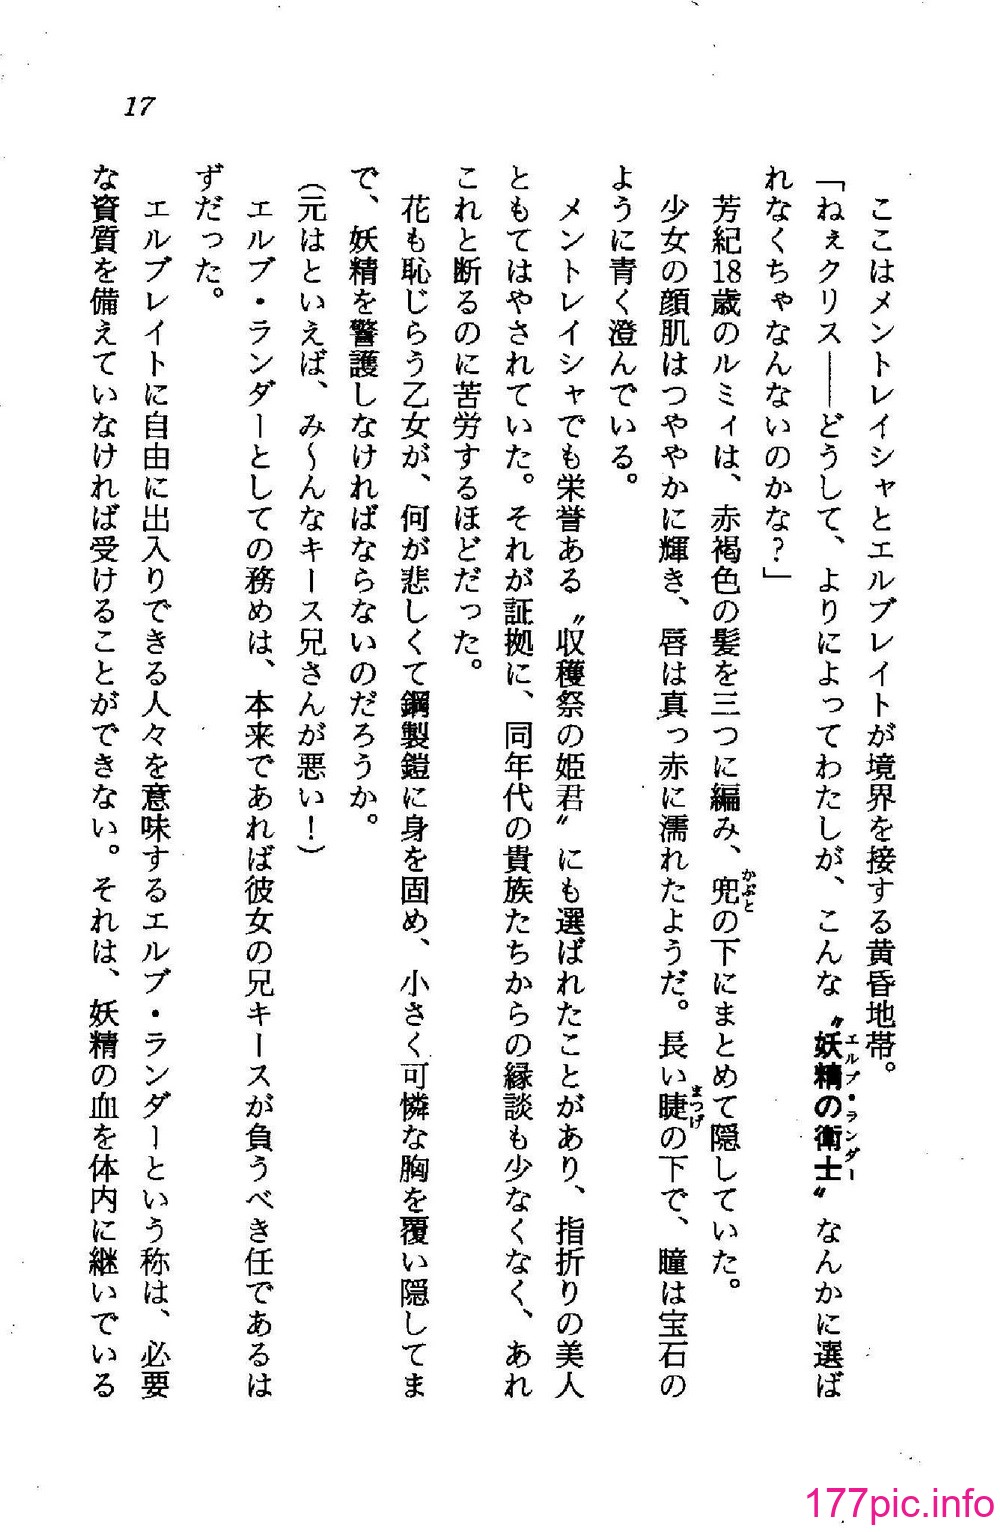 17
ここはメントレイシャとエルブレイトが境界を接する黄昏地帯。
「ねぇクリス――どうして、よりによってわたしが、こんな〝妖精の衛士〟なんかに選ば
エルブ・ランダー
れなくちゃなんないのかな?」
芳紀18歳のルミィは、赤褐色の髪を三つに編み、兜の下にまとめて隠していた。
かぶと
少女の顔肌はつややかに輝き、唇は真っ赤に濡れたようだ。長い睫の下で、瞳は宝石の
まつげ
ように青く澄んでいる。
メントレイシャでも栄誉ある〝収穫祭の姫君〟にも選ばれたことがあり、指折りの美人
ともてはやされていた。それが証拠に、同年代の貴族たちからの縁談も少なくなく、あれ
これと断るのに苦労するほどだった。
花も恥じらう乙女が、何が悲しくて鋼製鎧に身を固め、小さく可憐な胸を覆い隠してま
で、妖精を警護しなければならないのだろうか。
(元はといえば、み〜んなキース兄さんが悪い!)
エルブ・ランダーとしての務めは、本来であれば彼女の兄キースが負うべき任であるは
ずだった。
エルブレイトに自由に出入りできる人々を意味するエルブ・ランダーという称は、必要
な資質を備えていなければ受けることができない。それは、妖精の血を体内に継いでいる
177pic.info